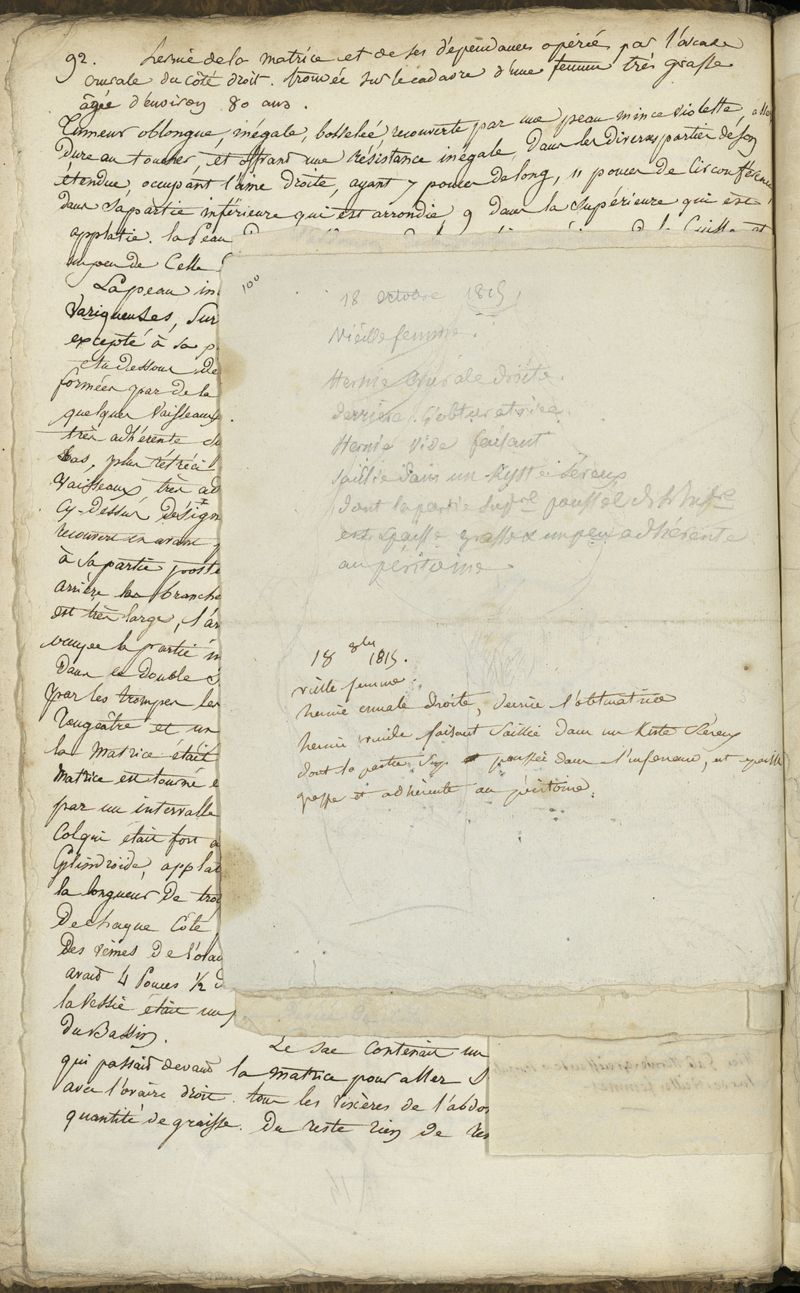 92. hernie de la matrice et de ses dépendances opérée par l'arcade
crurale du côté droit. trouvée sur le cadavre d'une femme très grasse
âgée d'environ 80 ans.
Tumeur oblongue, inégale, bosselée, recouverte par une peau mince violette,
dure au toucher, et offrant une résistance inégale, dans les diverses parties de son
étendue, occupant l'aine droite, ayant 7 pouces de long, 11 pouces de Circonférence
dans sa partie inférieure qui est arrondie 9 dans la supérieure qui est
applatie. la Peau
un peu de Celle
La peau in
Variqueuses, Sur
excepté à sa p
et au dessous de
formées par de la
quelques Vaisseaux
très adhérente
bas, plus rétréci
Vaisseaux, très ad
Cy-Dessus Désign
recouvert en avant
à sa partie poste
arrière les branche
est très large, l'ar
la partie in
Dans ce double
par les trompes les
rougeâtre et un
la Matrice était
Matrice est tourné e
par un intervalle
Col qui était fort a
Cylindroïde, applat
la longueur De troi
De chaque Côté
Des veines De l'ova
avait 4 Pouces 1/2 d
la Vessie était un
Du Bassin.
Le Sac Contenait un
qui passait devant la matrice pour aller
avec l'ovaire droit. tous les viscères de l'abdo
quantité de graisse. Du reste rien de re
100
18 octobre 1815,
Vieille femme.
Hernie Crurale droite.
derrière l'obturatrice.
Hernie vide faisant
saillie dans un Kyste séreux
dont la partie supre pousse ds l'infre
est épaisse grasse & un peu adhérente
au péritoine.
18 8bre 1815.
vieille femme.
hernie crurale droite, derrière l'obturatrice
hernie vuide faisant Saillie dans un Kiste Séreux
dont la partie Sup poussée dans l'inferieure, est épaisse
grasse et adhérente au péritoine.